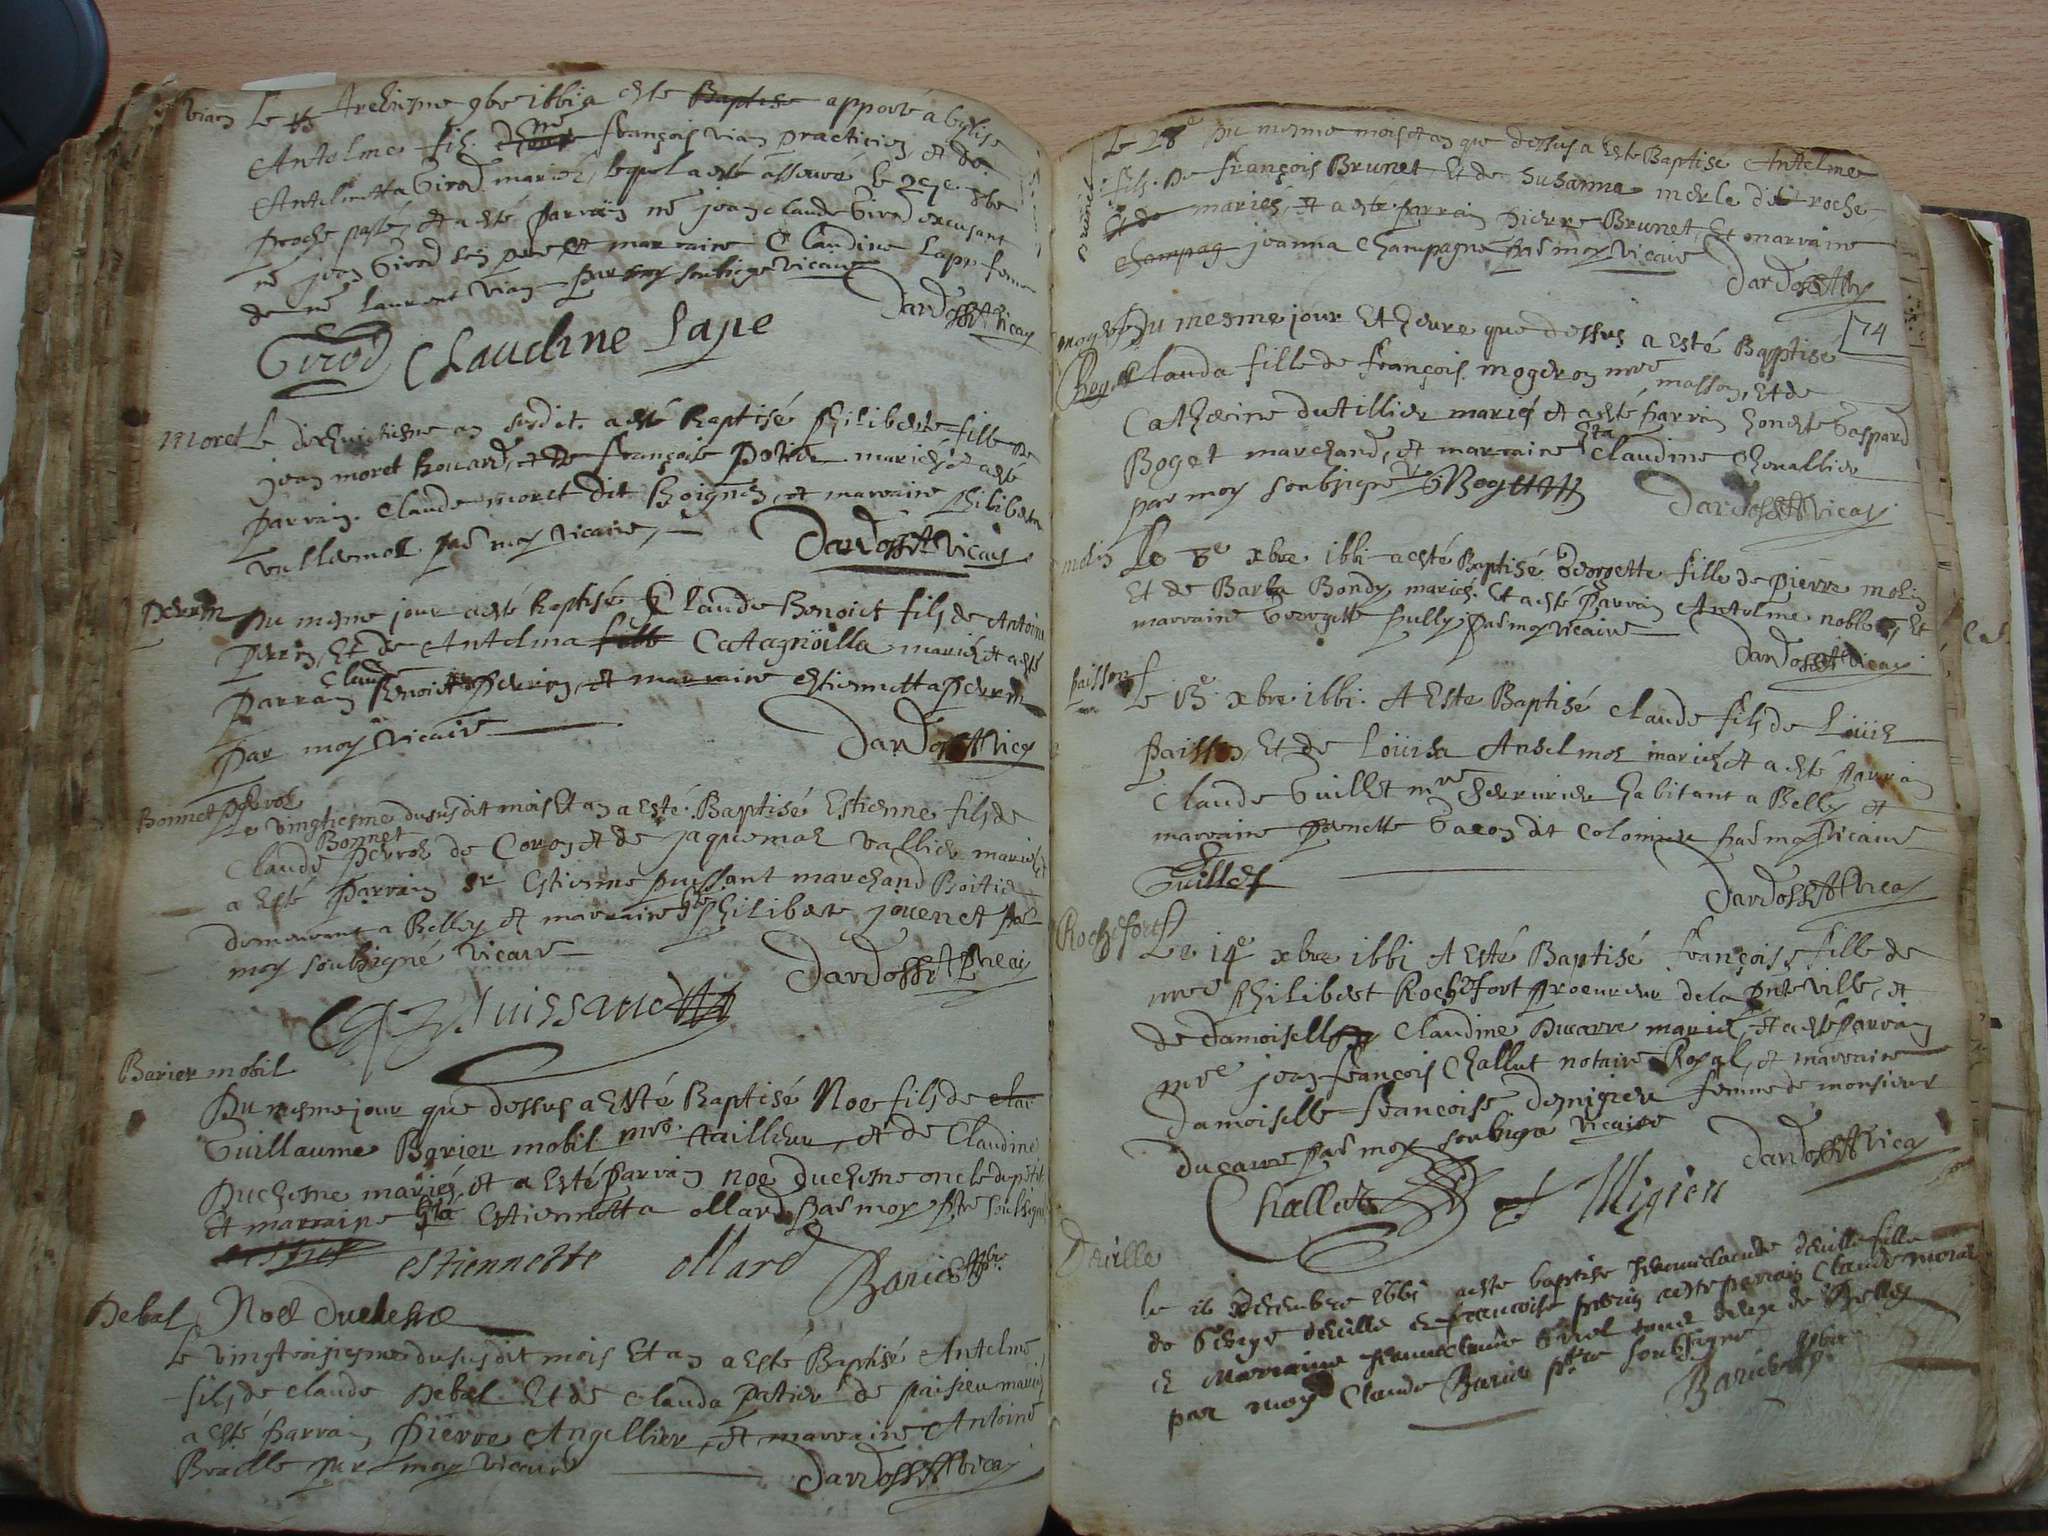 vian Le Treiziesme 9bre 1661 a esté Baptise apporté a leglise
Antelme fils de me françois vian practicien, et de
Antelmetta Girod mariés, lequel a esté le 9bre
proche passé, et a esté parrain me jean claude Girod excusant
me jean Girod son pere et marraine Claudine Lapp femme
de me Laurent vian par moy soubsigne vicaire
Dardossat vicay
Girod Claudine Laye
Moret Le dixhuictiesme an susdit a esté Baptisé Philiberte fille de
jean moret et de françoise Potier mariés et a esté
parrain Claude moret dit et marraine Philiberte
par moy vicaire,
Dardossat vicay
Perrin Du mesme jour a esté baptisé Claude Benoict fils de Antoine
Perrin, Et de Antelma fille Catagnöilla mariés et a esté
parrain Claude Benoict Perrin, et marraine estiennetta Perrin
par moy vicaire
Dardossat vicay
Bonnet Perroz
Le vingtiesme du susdit mois Et an a esté Baptisé Estienne fils de
Claude Bonnet Perroz de Coron et de jaquemaz vallier mariés et
a esté parrain sr Estienne puissant marchand
demeurant a Belley et marraine hte Philiberte jouenet par
moy soubsigné vicaire
Dardossat vicay
Puissant
Barier mobil
Du mesme jour que dessus a esté Baptisé Noe fils de clau
Guillaume Barier mobil mre tailleur, et de Claudine
Duchesne mariés, et a esté parrain noe duchesne oncle du petit
Et marraine hta Estiennetta ollard par moy pbre soubsigné
estiennette ollard
Barier pbre
Noel duchesne
Debal
Le vingtroisiesme du susdit mois Et an a esté Baptisé Antelme
fils de claude Debal Et de Clauda Potier de parsieu mariés
a esté parrain Pierre Angellier, et marraine Antoine
Braille par moy vicaire
Dardossat vicay
Le 28e Du mesme mois et an que dessus a esté Baptisé Antelme
fils de françois Brunet, Et de Susanna merle dit roche
Et de mariés, et a esté parrain Pierre Brunet, Et marraine
champag jeanna Champagne par moy vicaire
Dardossat
74
mogeron Du mesme jour Et heure que dessus a esté Baptisé
Clauda fille de françois mogeron mre masson, Et de
Boget
Catherine dutillier mariés et a esté parrain honeste Gaspard
Boget marchand, et marraine hta Claudine Chevallier
par moy soubsigné GBoget
Dardossat vicay
molin Le 8e xbre 1661 a esté Baptisé Georgette fille de Pierre molin
Et de Barba Bondy mariés. Et a esté parrain Antelme noblet, Et
marraine Georgette fully par moy vicaire
Dardossat vicay
paisson Le 13e xbre 1661. A esté Baptisé Claude fils de Loüis
Paisson, Et de Loüisa Anselmoz mariés et a esté parrain
Claude Guillet mre serrurier habitant a Belley et
marraine Pernette Garon dit Colomier par moy vicaire
Guillet
Dardossat vicay
Rochefort
Le 14e xbre 1661 A Esté Baptisé françoise fille de
mre Philibert Rochefort Procureur de la pnte ville, et
de damoiselle Claudine Ducarre mariés, et a esté parrain
mre jean françois Challut notaire Royal, et marraine
damoiselle françoise demigieu femme de monsieur
ducarre par moy soubsigné vicaire
Dardossat vicay
Challut f Migieu
Deuille
le 16 decembre 1661 a este baptise Jeanneclaude deuille fille
de George deuille et francoise a este parrain Claude Moraz
et Marraine Jeanneclaude Girel tous deux de Belley
par moy Claude Barier pbre soubsigné
Barier pbre